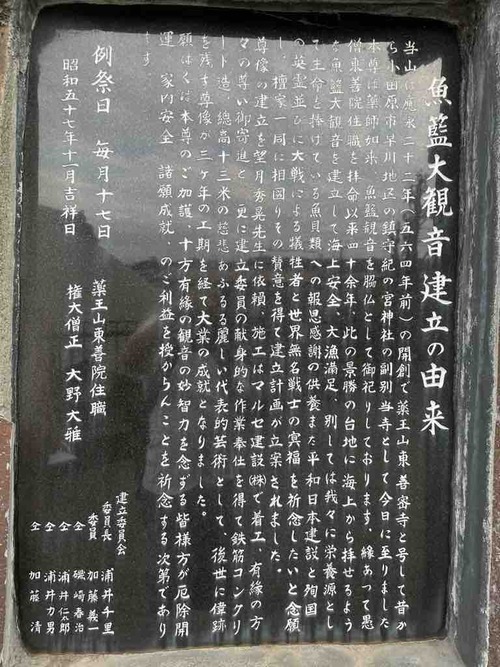 魚籃大観音建立の由来
当山は應永二十二年(五六四年前)の開創で薬王山東善寺と号して昔か
ら小田原市早川地区の鎮守紀の宮神社の別当寺として今日に至りました
本尊は薬師如来、魚籃観音を脇仏として御祀りしております。縁あって愚
僧東善院住職を拝命以来四十余年、此の景勝の台地に海上から拝せるよう
な魚籃大観音を建立して海上安全、大漁満足、別しては我々に栄養源とし
て生命を捧げている魚貝類への報恩感謝の供養また平和日本建設と殉国
の英霊並びに大戦による犠牲者と世界無名戦士の冥福を祈念したいと念願
し、檀家一同に相図りその賛意を得て建立計画が立案されました。
尊像の建立を望月秀晃先生に依頼、施工はマルセ建設㈱で着工、有縁の方
々の尊い御寄進と、更に建立委員の献身的な作業奉仕を得て鉄筋コンクリ
ート造、総高十三米の慈悲あふるる麗しい代表的芸術として、後世に偉跡
を残す尊像が三ヶ年の工期を経て大業の成就となりました。
願はくは本尊のご加護、十方有縁の観音の妙智力を念ずる皆様方が厄除開
運、家内安全、諸願成就、のご利益を授からんことを祈念する次第であり
ます。
例祭日 毎月十七日
昭和五十七年十一月吉祥日
薬王山東善院住職
権大僧正 大野大雅
建立委員会
委員長 浦井千里
委員 加藤義一
仝 磯崎春治
仝 浦井仁太郎
仝 浦井力男
仝 加藤清